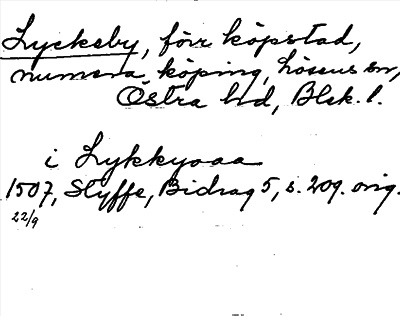 Lyckeby, förr köpstad,
numera köping, Lösens sn,
Östra hd, Blek. l.
i Lykkyoaa
1507, Styffe, Bidrag 5, s. 209. orig.
22/9